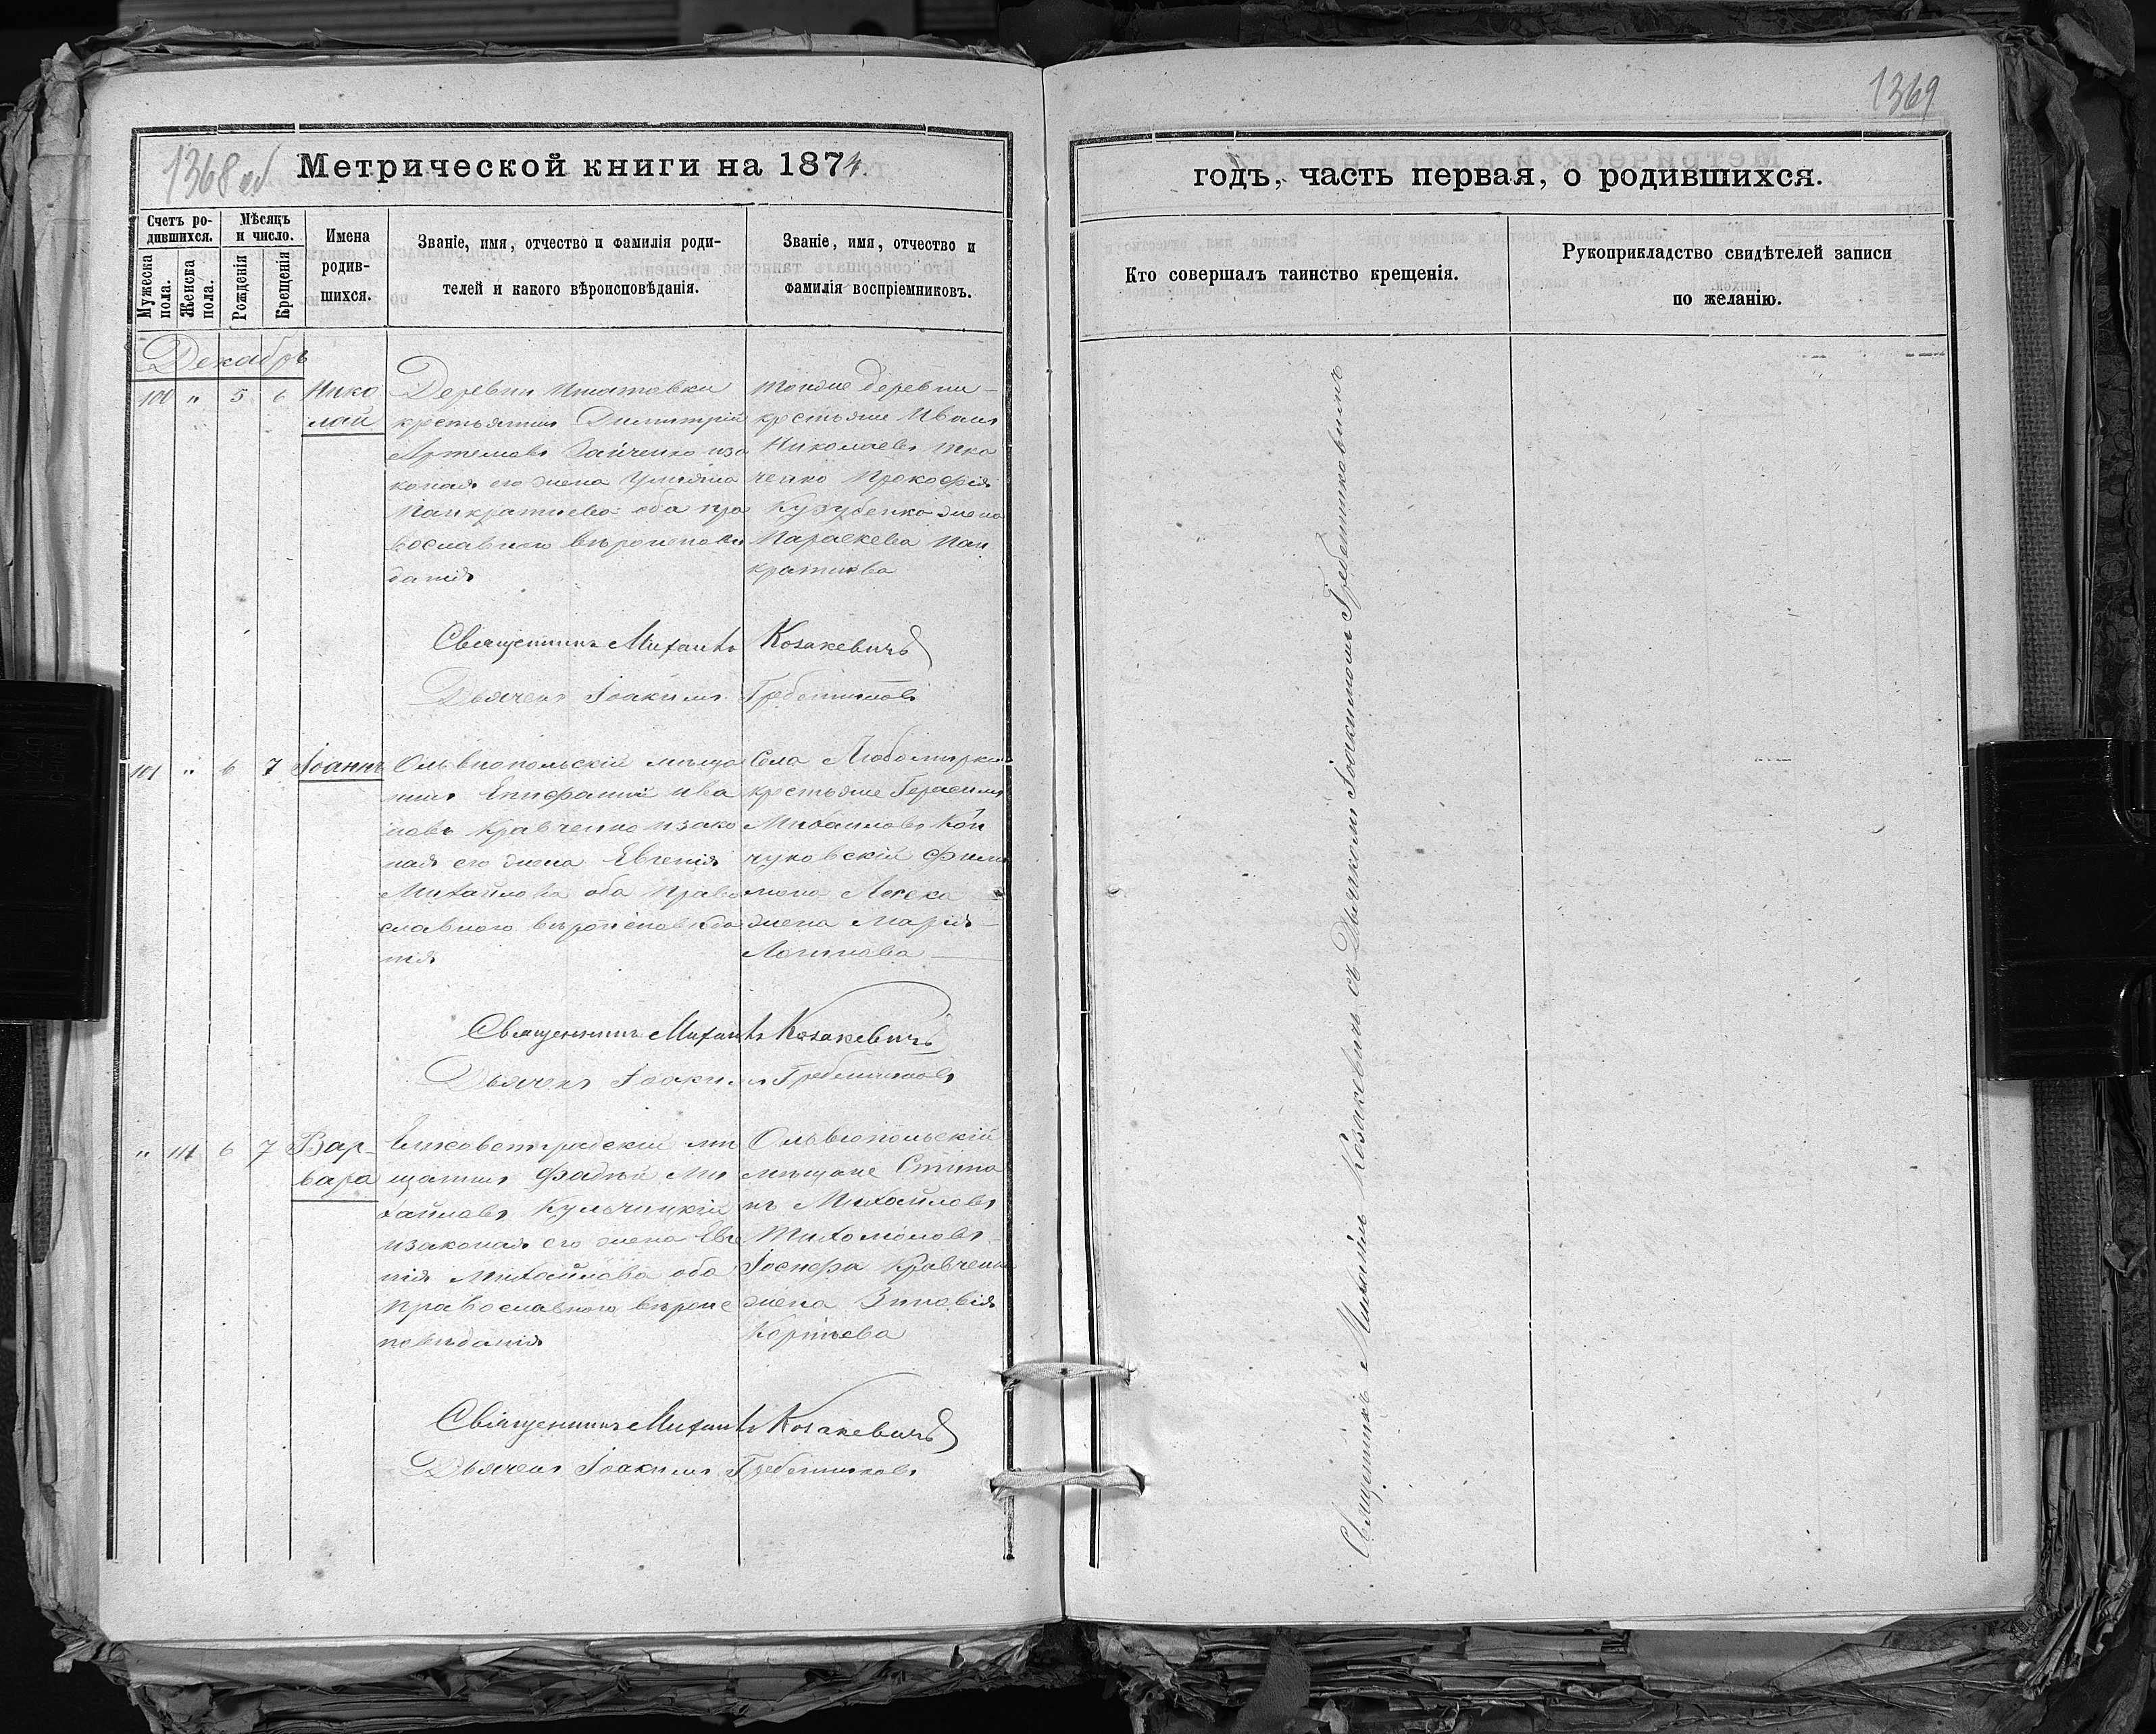 1368 об
Метрической книги на 1874.
Счетъ ро-
дившихся.
Мужеска
пола.
Женска
пола.
Мѣсяцъ
и число.
Рожденія
Крещенія
Имена
родив-
шихся.
Званіе, имя, отчество и фамилія роди-
телей и какого вѣроисповѣданія.
Званіе, имя, отчество и
фамилія воспріемниковъ.
Декабрь
100 " 5 6
Нико
лай
Деревни
крестьянинъ Димитрій
Артемовъ Зайченко изо
коная его жена Ульяна
Панкратиева оба пра
вославного вѣроисповѣ
данія
тойже деревни
крестьяне Иванъ
Николаевъ Тка
ченко Прокофія
жена
Параскева Пан
кратиева
Священникъ Михаилъ Козакевичъ
Дьячекъ Іоакимъ Гребенниковъ
101 " 6 7
Іоаннъ
Ольвіопольскій мѣща
нинъ Епифаній Ива
новъ Кравченко изако
ная его жена Евгенія
Михайлова оба право
славного вѣроисповѣда
нія
Села Любомирки
крестьяне Герасимъ
Михаиловъ
жена Марія
Логинова
Священникъ Михаилъ Козакевичъ
Дьячекъ Іоакимъ Гребенниковъ
" 111 6 7
Вар-
вара
Елисоветградскій мѣ
щанинъ Фадѣй Ми
хайловъ Кульчицкій
изаконая его жена Евге
нія Михайлова оба
православного вѣроис
повѣданія
Ольвіопольскій
мѣщане Стипа
нъ Михайловъ
Іосифа Кравченко
жена Зиновія
Священникъ Михаилъ Козакевичъ
Дьячекъ Іоакимъ Гребенниковъ
1369
годъ, часть первая, о родившихся.
Кто совершалъ таинство крещенія.
Рукоприкладство свидѣтелей записи
по желанію.
Священникъ Михаилъ Козакевичъ съ Дьячкомъ Іоакимомъ Гребенниковымъ